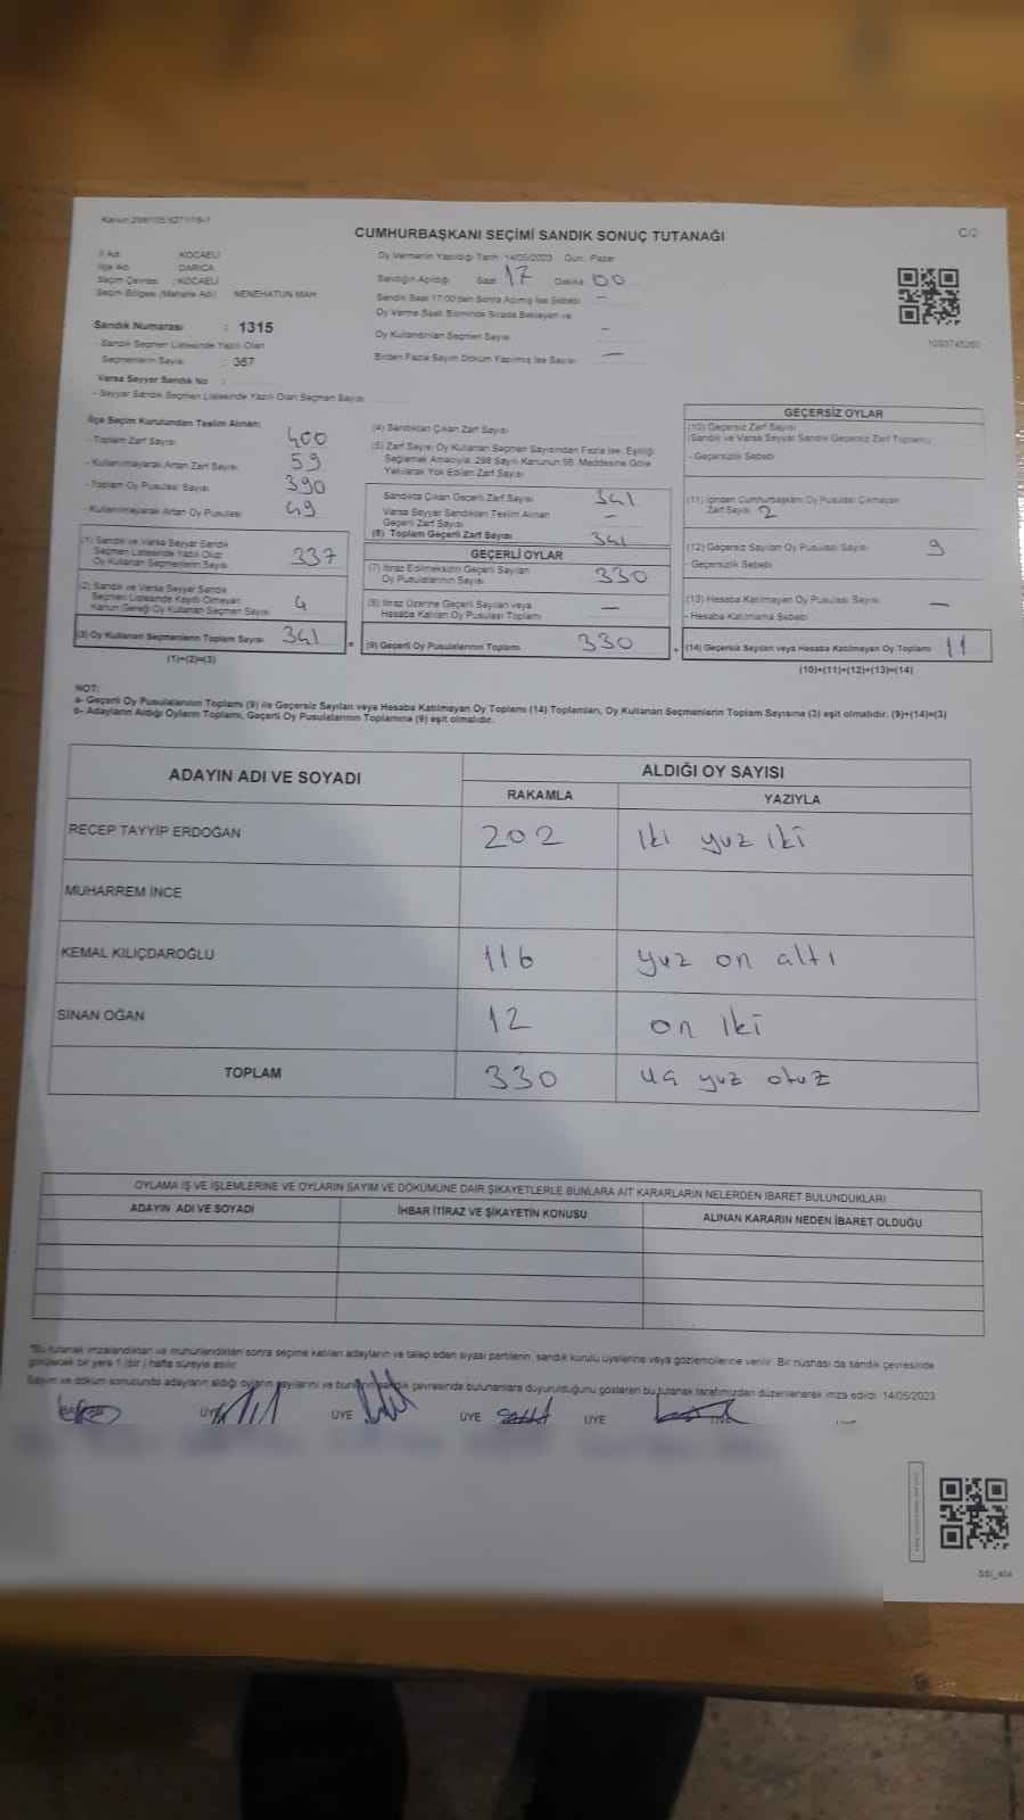 CUMHURBAŞKANI SEÇİMİ SANDIK SONUÇ TUTANAĞI
C/2
İl Adı : KOCAELİ
İlçe Adı : DARICA
Seçim Çevresi : KOCAELİ
Seçim Bölgesi (Mahalle Adı) : NENEHATUN MAH.
Sandık Numarası : 1315
Sandık Seçmen Listesinde Yazılı Olan
Seçmenlerin Sayısı : 367
Varsa Seyyar Sandık No :
- Seyyar Sandık Seçmen Listesinde Yazılı Olan Seçmen Sayısı
Oy Vermenin Yapıldığı Tarih : 14/05/2023 Gün : Pazar
Sandığın Açıldığı Saat 17 Dakika 00
Sandık Saat 17:00'den Sonra Açılmış İse Sebebi —
Oy Verme Saati Bitiminde Sırada Bekleyen ve
Oy Kullandırılan Seçmen Sayısı —
Birden Fazla Sayım Döküm Yapılmış İse Sayısı —
İlçe Seçim Kurulundan Teslim Alınan:
- Toplam Zarf Sayısı 400
- Kullanılmayarak Artan Zarf Sayısı 59
- Toplam Oy Pusulası Sayısı 390
- Kullanılmayarak Artan Oy Pusulası 49
(1) Sandık ve Varsa Seyyar Sandık
Seçmen Listesinde Yazılı Olup
Oy Kullanan Seçmenlerin Sayısı 337
(2) Sandık ve Varsa Seyyar Sandık
Seçmen Listesinde Kayıtlı Olmayan
Kanun Gereği Oy Kullanan Seçmen Sayısı 4
(3) Oy Kullanan Seçmenlerin Toplam Sayısı 341
(1)+(2)=(3)
(4) Sandıktan Çıkan Zarf Sayısı
(5) Zarf Sayısı Oy Kullanan Seçmen Sayısından Fazla İse, Eşitliği
Sağlamak Amacıyla, 298 Sayılı Kanunun 98. Maddesine Göre
Yakılarak Yok Edilen Zarf Sayısı
Sandıkta Çıkan Geçerli Zarf Sayısı 341
Varsa Seyyar Sandıktan Teslim Alınan
Geçerli Zarf Sayısı —
(6) Toplam Geçerli Zarf Sayısı 341
GEÇERLİ OYLAR
(7) İtiraz Edilmeksizin Geçerli Sayılan
Oy Pusulalarının Sayısı 330
(8) İtiraz Üzerine Geçerli Sayılan veya
Hesaba Katılan Oy Pusulası Toplamı —
(9) Geçerli Oy Pusulalarının Toplamı 330
GEÇERSİZ OYLAR
(10) Geçersiz Zarf Sayısı
(Sandık ve Varsa Seyyar Sandık Geçersiz Zarf Toplamı)
- Geçersizlik Sebebi
(11) İçinden Cumhurbaşkanı Oy Pusulası Çıkmayan
Zarf Sayısı 2
(12) Geçersiz Sayılan Oy Pusulası Sayısı 9
- Geçersizlik Sebebi
(13) Hesaba Katılmayan Oy Pusulası Sayısı —
- Hesaba Katılmama Sebebi
(14) Geçersiz Sayılan veya Hesaba Katılmayan Oy Toplamı 11
(10)+(11)+(12)+(13)=(14)
NOT:
a- Geçerli Oy Pusulalarının Toplamı (9) ile Geçersiz Sayılan veya Hesaba Katılmayan Oy Toplamı (14) Toplamları, Oy Kullanan Seçmenlerin Toplam Sayısına (3) eşit olmalıdır. (9)+(14)=(3)
b- Adayların Aldığı Oyların Toplamı, Geçerli Oy Pusulalarının Toplamına (9) eşit olmalıdır.
ADAYIN ADI VE SOYADI
ALDIĞI OY SAYISI
RAKAMLA YAZIYLA
RECEP TAYYİP ERDOĞAN 202 iki yuz iki
MUHARREM İNCE
KEMAL KILIÇDAROĞLU 116 yuz on altı
SİNAN OĞAN 12 on iki
TOPLAM 330 uç yuz otuz
OYLAMA İŞ VE İŞLEMLERİNE VE OYLARIN SAYIM VE DÖKÜMÜNE DAİR ŞİKAYETLERLE BUNLARA AİT KARARLARIN NELERDEN İBARET BULUNDUKLARI
ADAYIN ADI VE SOYADI İHBAR İTİRAZ VE ŞİKAYETİN KONUSU ALINAN KARARIN NEDEN İBARET OLDUĞU
*Bu tutanak imzalandıktan ve mühürlendikten sonra seçime katılan adayların ve talep eden siyasi partilerin, sandık kurulu üyelerine veya gözlemcilerine verilir. Bir nüshası da sandık çevresinde
görülecek bir yere 1 (bir) hafta süreyle asılır.
Sayım ve döküm sonucunda adayların aldığı oyların sayılarını ve bunların sandık çevresinde bulunanlara duyurulduğunu gösteren bu tutanak tarafımızdan düzenlenerek imza edildi. 14/05/2023
ÜYE ÜYE ÜYE ÜYE